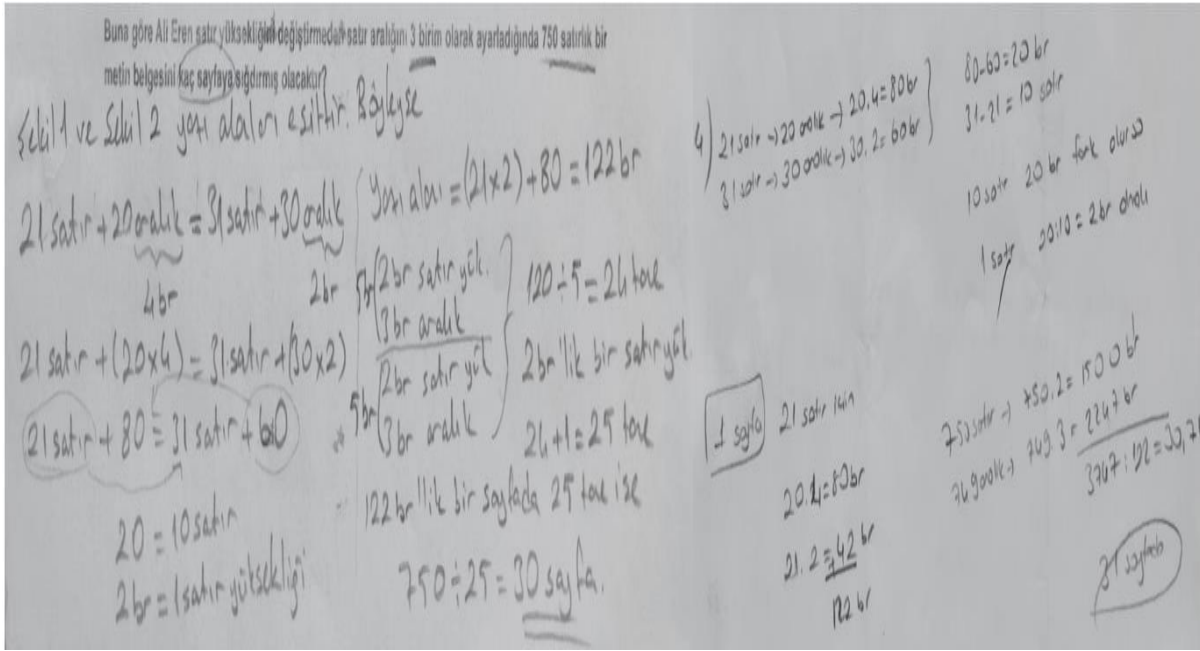 Buna göre Ali Eren satır yüksekliğini değiştirmeden satır aralığını 3 birim olarak ayarladığında 750 satırlık bir
metin belgesini kaç sayfaya sığdırmış olacaktır?
Şekil 1 ve Şekil 2 yazı alanları eşittir. Böyleyse
21 satır + 20 aralık = 31 satır + 30 aralık
4br 2br
21 satır + (20x4) = 31 satır + (30x2)
21 satır + 80 = 31 satır + 60
20 = 10 satır
2br = 1 satır yüksekliği
Yazı alanı = (21x2) + 80 = 122 br
5br 2br satır yük.
3br aralık
5br 2br satır yük
3br aralık
120 ÷ 5 = 24 tane
2br'lik bir satır yük.
24 + 1 = 25 tane
122 br'lik bir sayfada 25 tane ise
750 ÷ 25 = 30 sayfa.
4) 21 satır → 20 aralık → 20.4 = 80br
31 satır → 30 aralık → 30.2 = 60br
80-60 = 20 br
31-21 = 10 satır
10 satır 20 br fark olursa
1 satır 20:10 = 2br
1 sayfa 21 satır için
20.4 = 80br
21.2 = 42 br
122 br
750 satır → 750.2 = 1500 br
749 aralık → 749.3 = 2247 br
3747 : 122 = 30,7
31 sayfa